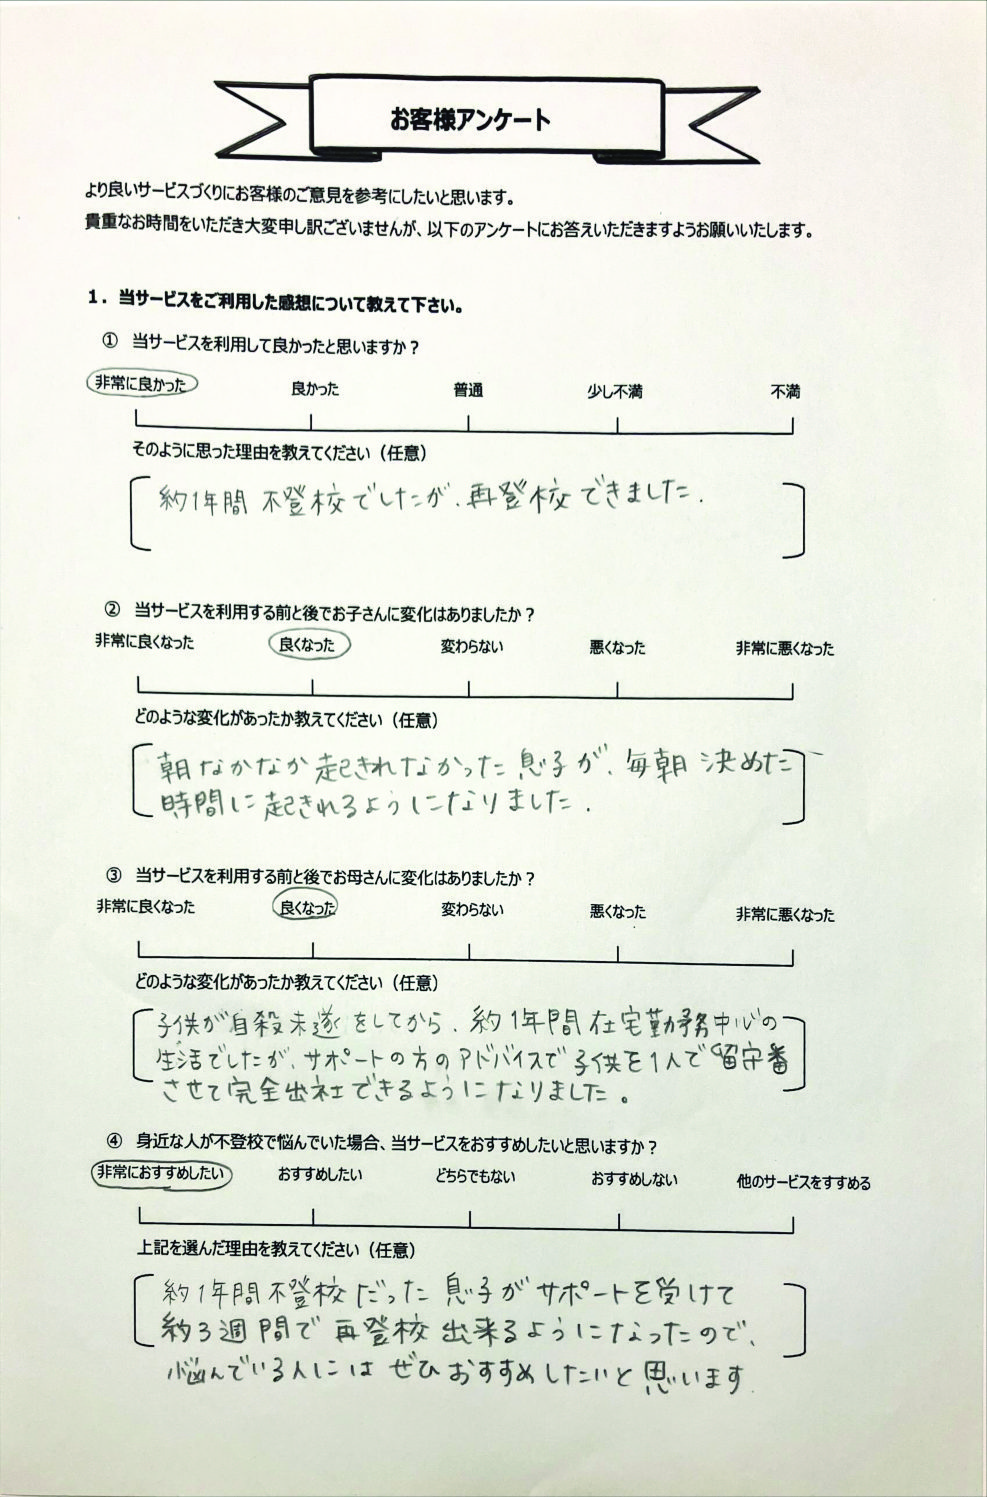 お客様アンケート
より良いサービスづくりにお客様のご意見を参考にしたいと思います。
貴重なお時間をいただき大変申し訳ございませんが、以下のアンケートにお答えいただきますようお願いいたします。
1．当サービスをご利用した感想について教えて下さい。
① 当サービスを利用して良かったと思いますか？
非常に良かった 良かった 普通 少し不満 不満
そのように思った理由を教えてください（任意）
約1年間 不登校でしたが、再登校できました.
② 当サービスを利用する前と後でお子さんに変化はありましたか？
非常に良くなった 良くなった 変わらない 悪くなった 非常に悪くなった
どのような変化があったか教えてください（任意）
朝なかなか起きれなかった息子が、毎朝決めた
時間に起きれるようになりました.
③ 当サービスを利用する前と後でお母さんに変化はありましたか？
非常に良くなった 良くなった 変わらない 悪くなった 非常に悪くなった
どのような変化があったか教えてください（任意）
子供が自殺未遂をしてから、約1年間在宅勤務中心の
生活でしたが、サポートの方のアドバイスで子供を1人で留守番
させて完全出社できるようになりました。
④ 身近な人が不登校で悩んでいた場合、当サービスをおすすめしたいと思いますか？
非常におすすめしたい おすすめしたい どちらでもない おすすめしない 他のサービスをすすめる
上記を選んだ理由を教えてください（任意）
約1年間不登校だった息子がサポートを受けて
約3週間で再登校出来るようになったので、
悩んでいる人にはぜひおすすめしたいと思います.